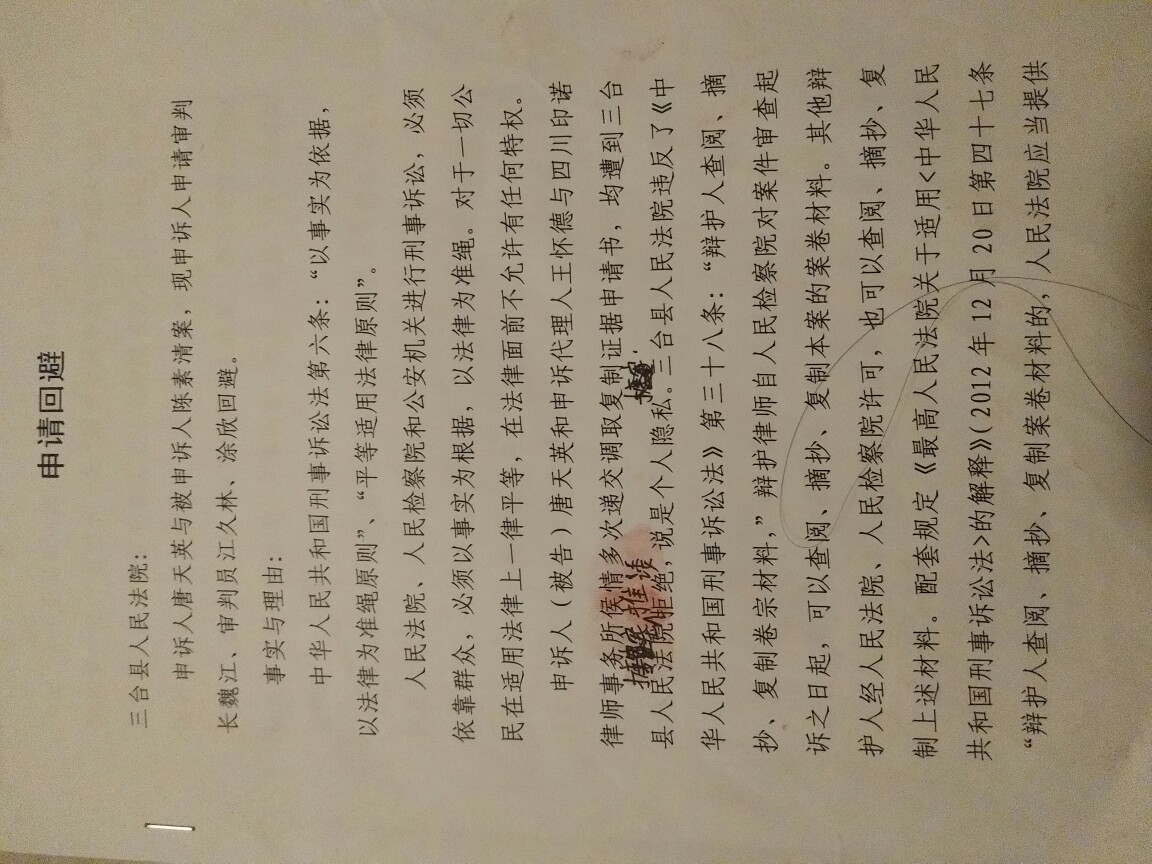 申请回避
三台县人民法院：
申诉人唐天英与被申诉人陈素清案，现申诉人申请审判
长魏江、审判员江久林、涂欣回避。
事实与理由：
中华人民共和国刑事诉讼法第六条：“以事实为依据，
以法律为准绳原则”、“平等适用法律原则”。
人民法院、人民检察院和公安机关进行刑事诉讼，必须
依靠群众，必须以事实为根据，以法律为准绳。对于一切公
民在适用法律上一律平等，在法律面前不允许有任何特权。
申诉人（被告）唐天英和申诉代理人王怀德与四川印诺
律师事务所侯情多次递交调取复制证据申请书，均遭到三台
县人民法院拒绝，说是个人隐私。三台县人民法院违反了《中
华人民共和国刑事诉讼法》第三十八条：“辩护人查阅、摘
抄、复制卷宗材料，”辩护律师自人民检察院对案件审查起
诉之日起，可以查阅、摘抄、复制本案的案卷材料。其他辩
护人经人民法院、人民检察院许可，也可以查阅、摘抄、复
制上述材料。配套规定《最高人民法院关于适用<中华人民
共和国刑事诉讼法>的解释》（2012 年 12 月 20 日第四十七条
“辩护人查阅、摘抄、复制案卷材料的，人民法院应当提供